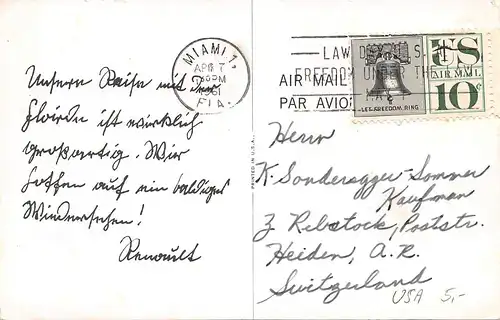 Unsere Reise mit dem
Florida ist wirklich
großartig. Wir
hoffen auf ein baldiges
Wiedersehen!
Renault
MIAMI 1,
APR 7
PM
1961
FLA.
LAW
FREEDOM UNDER THE
AIR MAIL
PAR AVION
LET FREEDOM RING
US
AIR MAIL
10¢
PRINTED IN U.S.A.
Herrn
K. Sonderegger-Sommer
Kaufman
z Rebstock, Poststr.
Heiden, A. R.
Switzerland
USA 5,-